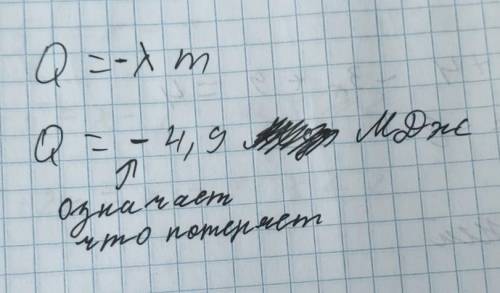 Q = -λ m
Q = - 4,9 МДж
означает
что потеряет